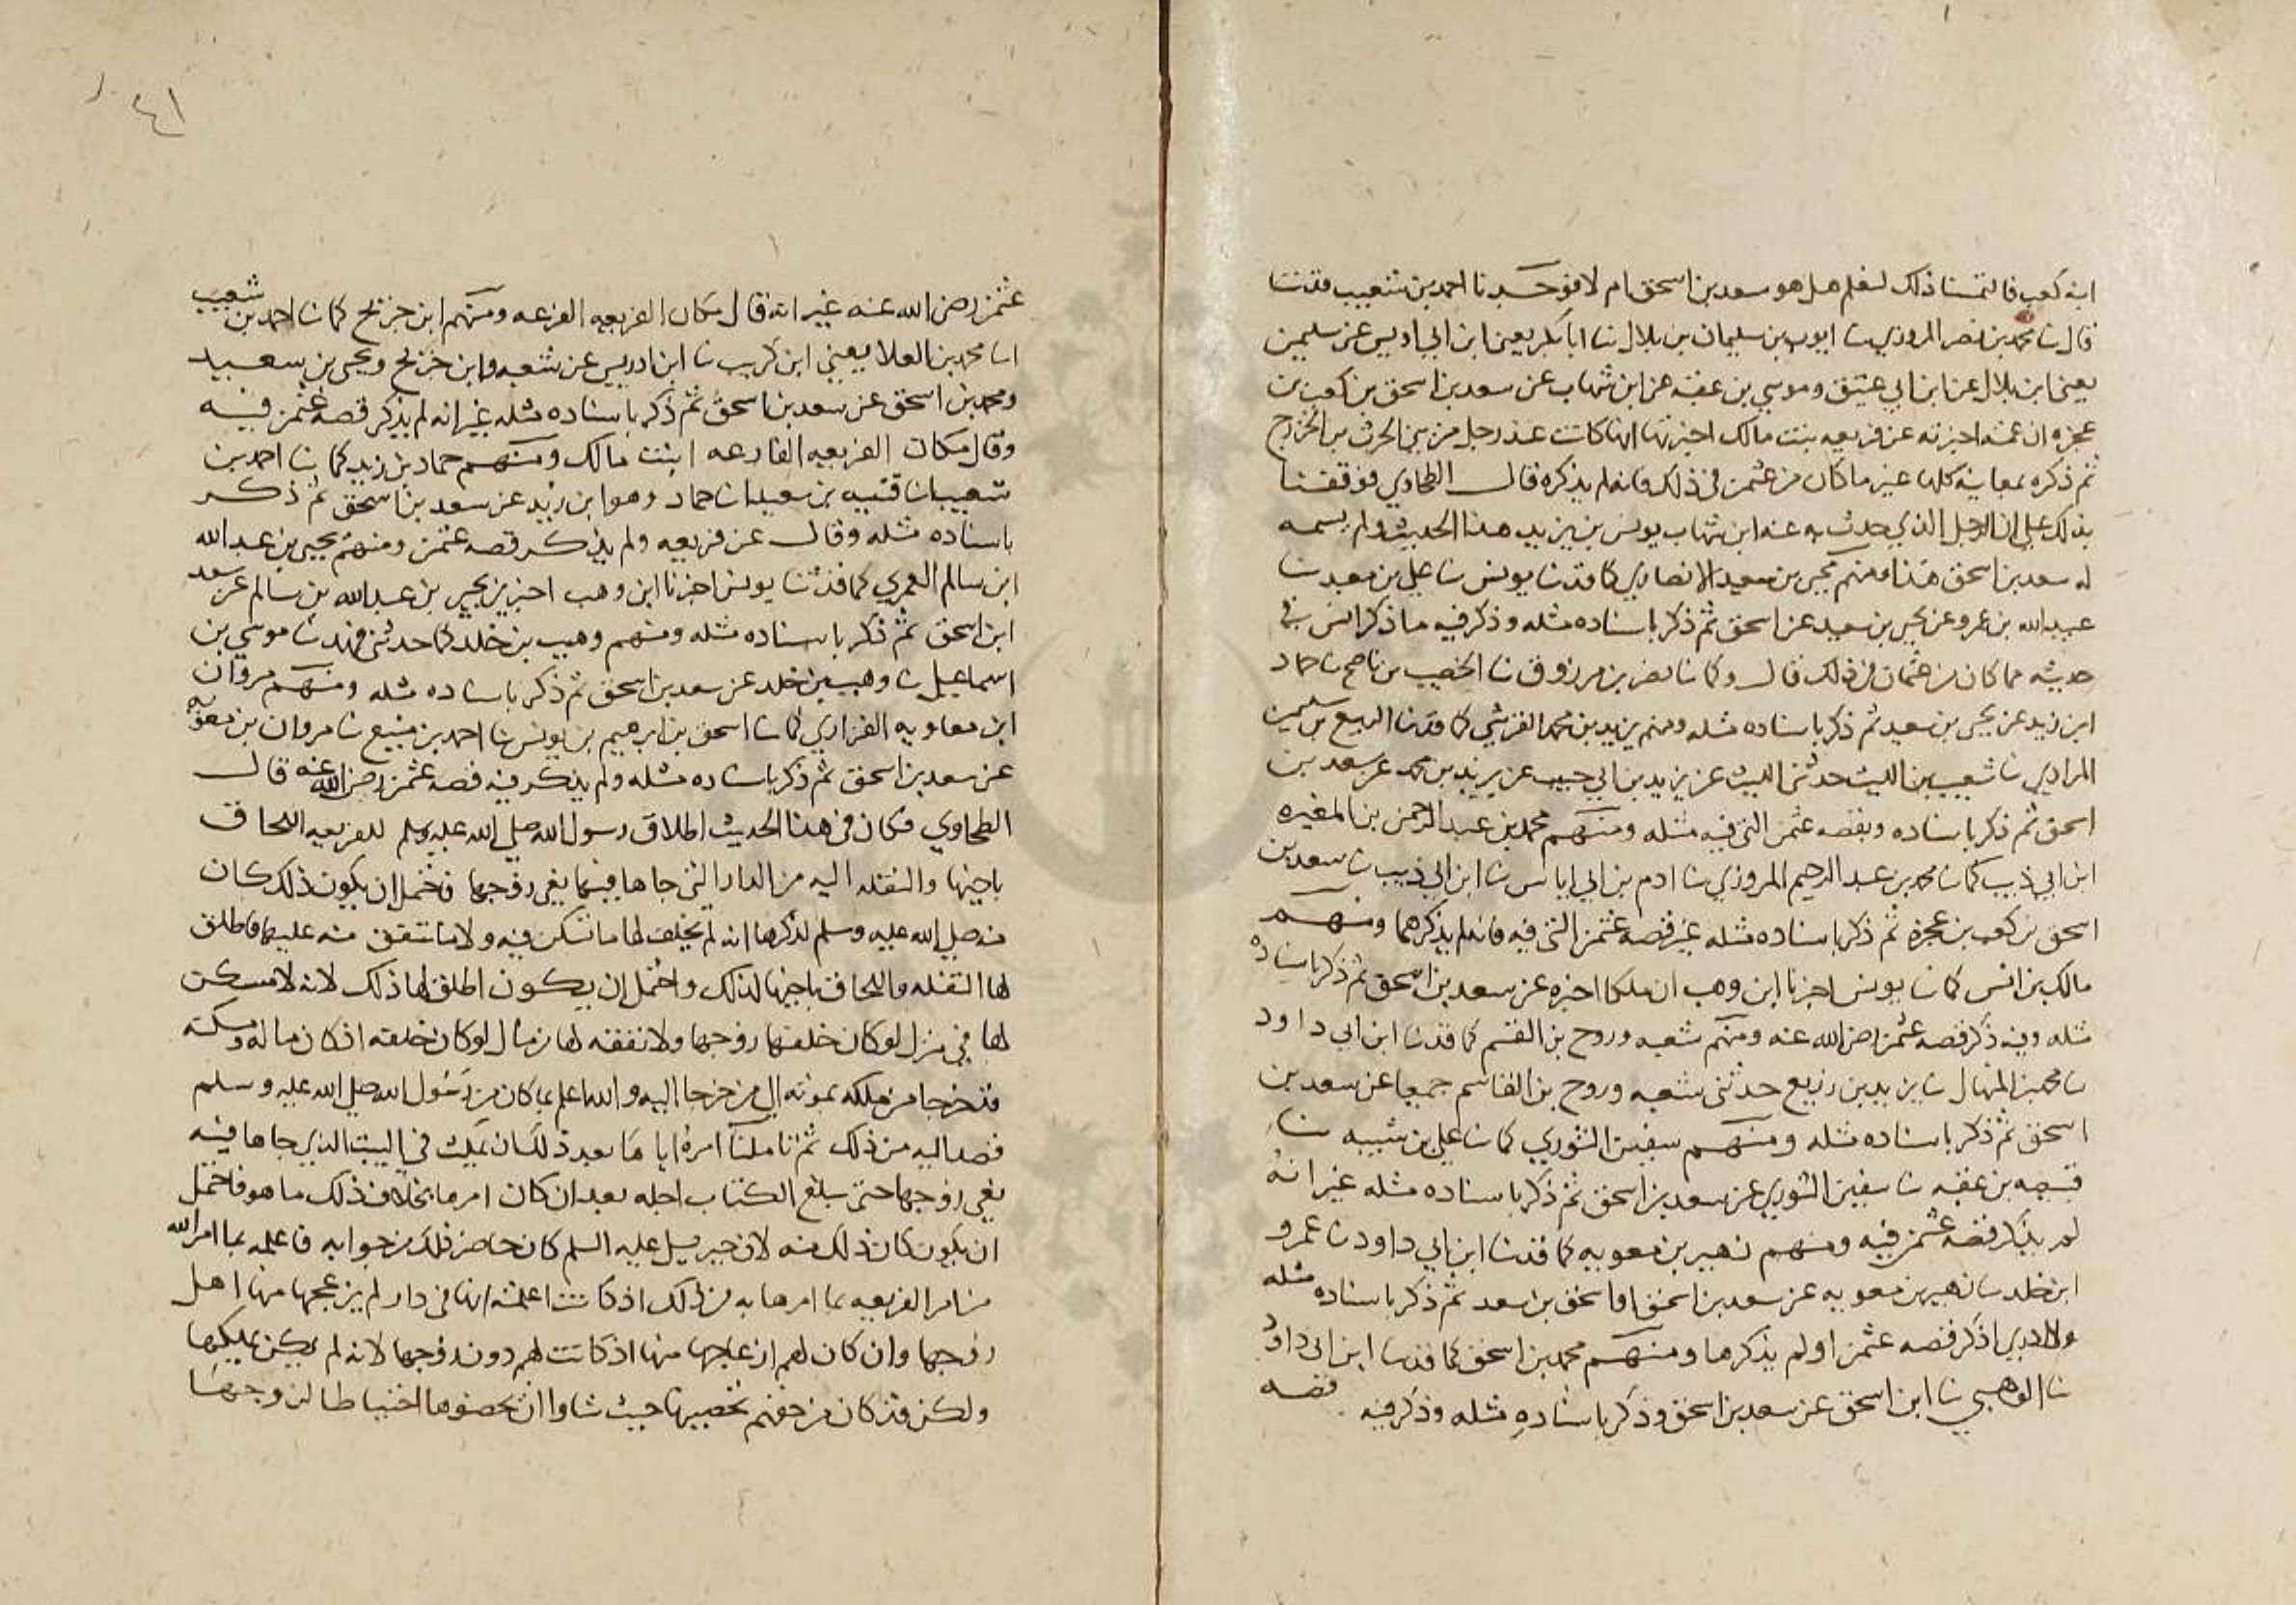 ابنه كعب فالتمسنا ذلك لنعلم هل هو سعد بن اسحق ام لا فوجدنا احمد بن شعيب قد ثنا
قال ثنا محمد بن نصر المروزي ثنا ايوب بن سليمان بن بلال ثنا ابا بكر يعني ابن ابي اويس عن سليمن
يعني ابن بلال عن ابن ابي عتيق وموسي بن عقبه عن ابن شهاب عن سعد بن اسحق بن كعب بن
عجره ان عمته اخبرته عن فريعه بنت مالك اخبرتها انها كانت عند رجل من بني الحرث بن الخزرج
ثم ذكره بمعانيه كلها غير ما كان من عثمن في ذلك فانه لم يذكره قال الطحاوي فوقفنا
بذلك علي ان الرجل الذي حدث به عنه ابن شهاب يونس بن يزيد هذا الحديث ولم يسمه
له سعد بن اسحق هذا ومنهم يحيي بن سعيد الانصاري كما قد ثنا يونس ثنا علي بن معبد ثنا
عبيد الله بن عمرو عن يحيي بن سعيد عن اسحق ثم ذكر باسناده مثله وذكر فيه ما ذكر انس في
حديثه مما كان من عثمان في ذلك قال وكما ثنا نصر بن مرزوق ثنا الخصيب بن ناصح ثنا حماد
ابن زيد عن يحيي بن سعيد ثم ذكر باسناده مثله ومنهم يزيد بن محمد القرشي كما قد ثنا الربيع بن سليمن
المرادي ثنا شعيب بن الليث حدثني الليث عن يزيد بن ابي حبيب عن يزيد بن محمد عن سعد بن
اسحق ثم ذكر باسناده وبقصه عثمن التي فيه مثله ومنهم محمد بن عبد الرحمن بن المغيره
ابن ابي ذيب كما ثنا محمد بن عبد الرحيم المروزي ثنا ادم بن ابي اياس ثنا ابن ابي ذيب ثنا سعد بن
اسحق بن كعب بن عجره ثم ذكر باسناده مثله غير قصه عثمن التي فيه فانه لم يذكرهما ومنهم
مالك بن انس كما ثنا يونس اخبرنا ابن وهب ان ملكا اخبره عن سعد بن اسحق ثم ذكر باسناده
مثله وفيه ذكر قصه عثمن رضي الله عنه ومنهم شعبه وروح بن القسم كما قد ثنا ابن ابي داود
ثنا محمد بن المنهال ثنا يزيد بن زريع حدثني شعبه وروح بن القاسم جميعا عن سعد بن
اسحق ثم ذكر باسناده مثله ومنهم سفين الثوري كما ثنا علي بن شيبه ثنا
قبيصه بن عقبه ثنا سفين الثوري عن سعد بن اسحق ثم ذكر باسناده مثله غير انه
لم يذكر قصه عثمن فيه ومنهم زهير بن معويه كما قد ثنا ابن ابي داود ثنا عمرو
ابن خلد ثنا زهير بن معويه عن سعد بن اسحق او اسحق بن سعد ثم ذكر باسناده مثله
ولا ادري اذكر قصه عثمن او لم يذكرها ومنهم محمد بن اسحق كما قد ثنا ابن ابي داود
ثنا الوهبي ثنا ابن اسحق عن سعد بن اسحق وذكر باسناده مثله وذكر فيه قصه
٤١
عثمن رضي الله عنه غير انه قال مكان الفريعه الفرعه ومنهم ابن جريج كما ثنا احمد بن شعيب
انا محمد بن العلا يعني ابن كريب ثنا ابن ادريس عن شعبه وابن جريج ويحيي بن سعيد
ومحمد بن اسحق عن سعد بن اسحق ثم ذكر باسناده مثله غير انه لم يذكر قصه عثمن فيه
وقال مكان الفريعه الفارعه ابنت مالك ومنهم حماد بن زيد كما ثنا احمد بن
شعيب انا قتيبه بن سعيد انا حماد وهو ابن زيد عن سعد بن اسحق ثم ذكر
باسناده مثله وقال عن فريعه ولم يذكر قصه عثمن ومنهم يحيي بن عبد الله
ابن سالم العمري كما قد ثنا يونس اخبرنا ابن وهب اخبرني يحيي بن عبد الله بن سالم عن سعد
ابن اسحق ثم ذكر باسناده مثله ومنهم وهيب بن خلد كما حدثني فهد ثنا موسي بن
اسماعيل ثنا وهيب بن خلد عن سعد بن اسحق ثم ذكر باسناده مثله ومنهم مروان
ابن معاويه الفزاري كما ثنا اسحق بن ابرهيم بن يونس ثنا احمد بن منيع ثنا مروان بن معويه
عن سعد بن اسحق ثم ذكر باسناده مثله ولم يذكر فيه قصه عثمن رضي الله عنه قال
الطحاوي فكان في هذا الحديث اطلاق رسول الله صلي الله عليه وسلم للفريعه اللحاق
باخيها والنقله اليه من الدار التي جاها فيها نعي زوجها فاحتمل ان يكون ذلك كان
منه صلي الله عليه وسلم لذكرها انه لم يخلف لها ما تسكن فيه ولا ما تنفق منه عليها فاطلق
لها النقله واللحاق باخيها لذلك واحتمل ان يكون اطلق لها ذلك لانه لا مسكن
لها في منزل لو كان خلفها زوجها ولا نفقه لها من مال لو كان خلفه اذ كان ماله ومسكنه
قد خرجا من ملكه بموته الي من خرجا اليه والله اعلم بما كان من رسول الله صلي الله عليه وسلم
قصد اليه من ذلك ثم تاملنا امره اياها بعد ذلك ان تمكث في البيت الذي جاها فيه
نعي زوجها حتي يبلغ الكتاب اجله بعد ان كان امرها بخلاف ذلك ما هو فاحتمل
ان يكون كان ذلك منه لان جبريل عليه السلم كان حاضر ذلك من جوابه فاعلمه بما امر الله
من امر الفريعه بما امرها به من ذلك اذ كانت اعلمته انها في دار لم يزعجها منها اهل
زوجها وان كان لهم ازعاجها منها اذ كانت لهم دون زوجها لانه لم يكن يملكها
ولكن قد كان من حقهم تحصينها حيث شاوا ان يحصنوها احتياطا لزوجها